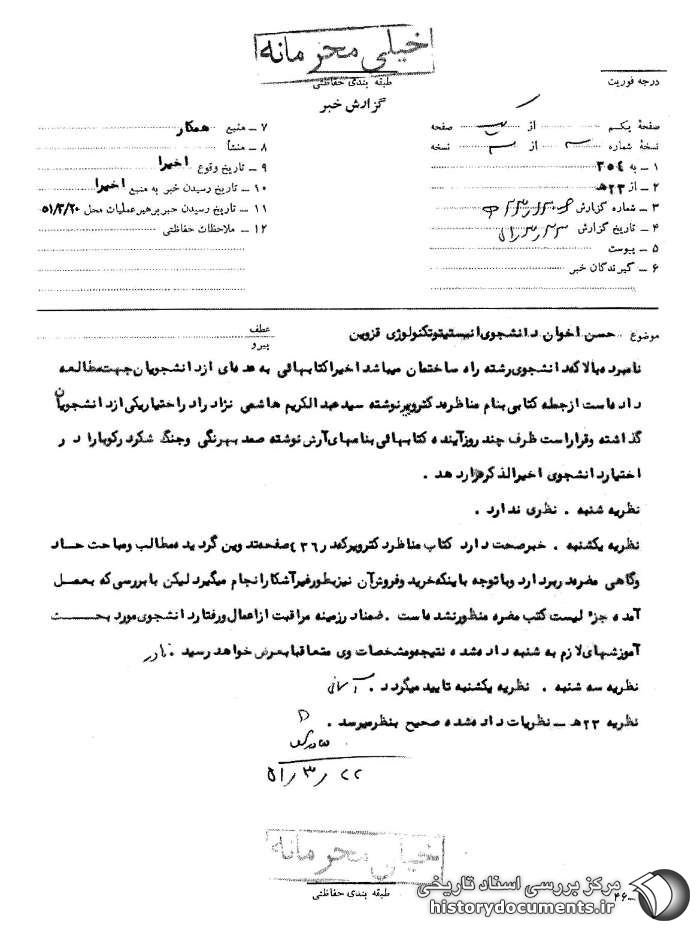 خیلی محرمانه
طبقه بندی حفاظتی
درجه فوریت
گزارش خبر
صفحهٔ یکم از یک صفحه
نسخهٔ شماره ۳ از ۳ نسخه
۱ ــ به ۳۵۴
۲ ــ از ۲۳ه‍
۳ ــ شماره گزارش
۴ ــ تاریخ گزارش
۵ ــ پیوست
۶ ــ گیرندگان خبر
۷ ــ منبع همکار
۸ ــ منشأ
۹ ــ تاریخ وقوع اخیرا
۱۰ ــ تاریخ رسیدن خبر به منبع اخیرا
۱۱ ــ تاریخ رسیدن خبر برهبر عملیات محل ۵۱/۳/۲۰
۱۲ ــ ملاحظات حفاظتی
موضوع حسن اخوان دانشجوی انیستیتوتکنولوژی قزوین
عطف
پیرو
نامبرده بالا که دانشجوی رشته راه ساختمان میباشد اخیرا کتابهائی به عده ای از دانشجویان جهت مطالعه
داده است از جمله کتابی بنام مناظره دکترو پیر نوشته سید عبدالکریم هاشمی نژاد را در اختیار یکی از دانشجویان
گذاشته و قرار است ظرف چند روز آینده کتابهائی بنامهای آرش نوشته صمد بهرنگی و جنگ شکر در کوبا را در
اختیار دانشجوی اخیرالذکر قرار دهد .
نظریه شنبه . نظری ندارد .
نظریه یکشنبه . خبر صحت دارد کتاب مناظره دکترو پیر که در ۴۳۶ صفحه تدوین گردیده مطالب و مباحث حاد
و گاهی مضره در بر دارد و با توجه باینکه خرید و فروش آن نیز بطور غیر آشکارا انجام میگیرد لیکن با بررسی که بعمل
آمده جزء لیست کتب مضره منظور نشده است . ضمنا در زمینه مراقبت از اعمال و رفتار دانشجوی مورد بحث
آموزشهای لازم به شنبه داده شده نتیجه و مشخصات وی متعاقبا بعرض خواهد رسید . نادر
نظریه سه شنبه . نظریه یکشنبه تایید میگردد . آسانی
نظریه ۲۳ه‍ ــ نظریات داده شده صحیح بنظر میرسد .
۵۱/۳/۲۲
خیلی محرمانه
طبقه بندی حفاظتی
۴۶
مرکز بررسی اسناد تاریخی
historydocuments.ir